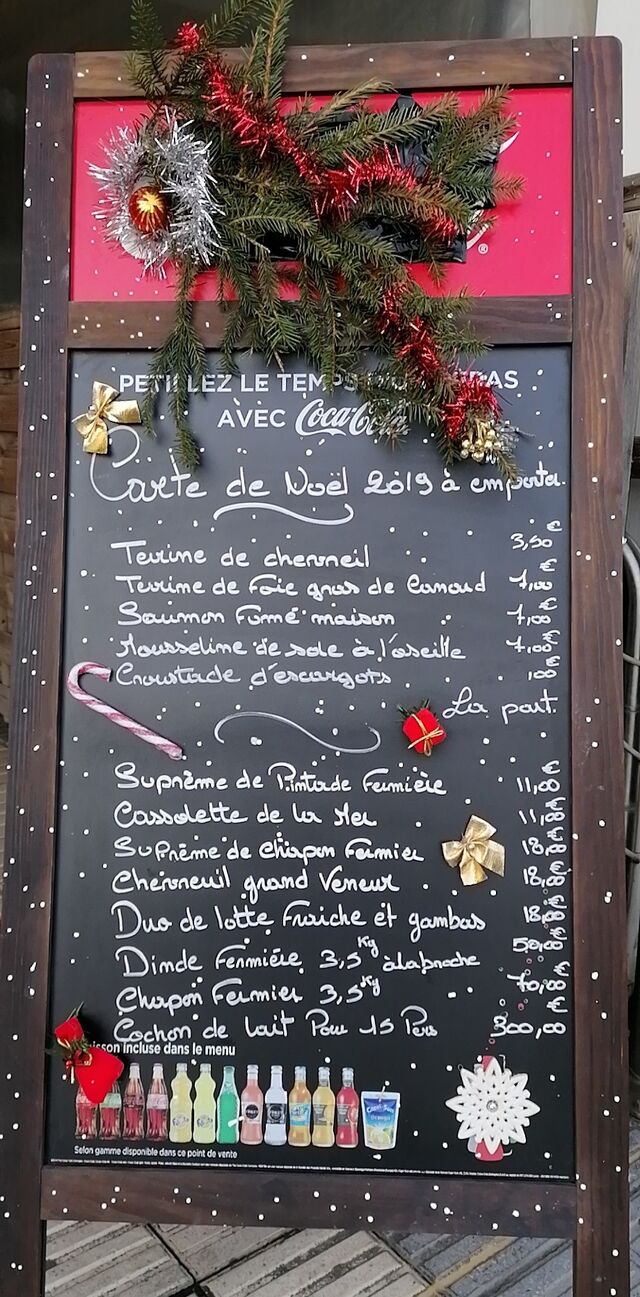 PETILLEZ LE TEMPS
AVEC Coca-Cola
Carte de Noël 2019 à emporter.
Terrine de chevreuil 3,50€
Terrine de Foie gras de Canard 7,00€
Saumon Fumé maison 7,00€
Mousseline de sole à l'oseille 7,00€
Croustade d'escargots 1,00€
La part.
Suprême de Pintade Fermière 11,00€
Cassolette de la Mer 11,00€
Suprême de Chapon Fermier 18,00€
Chevreuil grand Veneur 18,00€
Duo de lotte Fraiche et gambas 18,00€
Dinde Fermière 3,5Kg à la broche 50,00€
Chapon Fermier 3,5Kg 70,00€
Cochon de lait Pour 15 Pers 300,00€
incluse dans le menu
Selon gamme disponible dans ce point de vente